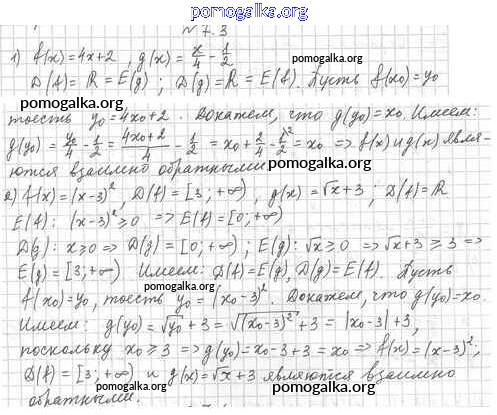 pomogalka.org
№ 7.3
1) f(x)=4x+2, g(x)= x/4 - 1/2
D(f)=R=E(g); D(g)=R=E(f). Пусть f(x₀)=y₀
pomogalka.org
тоесть y₀=4x₀+2. Докажем, что g(y₀)=x₀. Имеем:
g(y₀)= y₀/4 - 1/2 = (4x₀+2)/4 - 1/2 = x₀ + 2/4 - 1/2 = x₀ => f(x) и g(x) явля-
ются взаимно обратными
pomogalka.org
2) f(x)=(x-3)², D(f)=[3;+∞), g(x)=√x+3; D(f)=R
E(f): (x-3)²≥0 => E(f)=[0;+∞)
D(g): x≥0 => D(g)=[0;+∞); E(g): √x≥0 => √x+3≥3 =>
E(g)=[3;+∞) Имеем: D(f)=E(g), D(g)=E(f). Пусть
pomogalka.org
f(x₀)=y₀, тоесть y₀=(x₀-3)². Докажем, что g(y₀)=x₀.
Имеем: g(y₀)=√y₀+3=√(x₀-3)²+3=|x₀-3|+3,
pomogalka.org
pomogalka.org
поскольку x₀≥3 => g(y₀)=x₀-3+3=x₀ => f(x)=(x-3)²;
D(f)=[3;+∞) и g(x)=√x+3 являются взаимно
обратными.
pomogalka.org
pomogalka.org